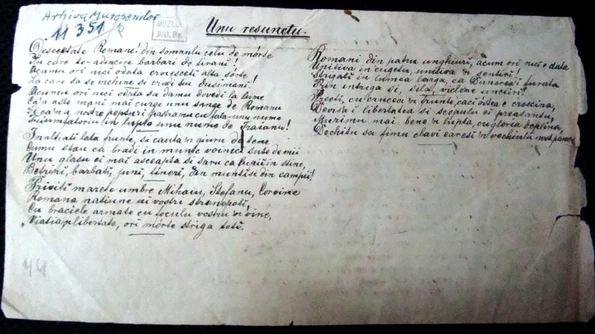 Arhiva Muresenilor
11351
Unu resunetu.
Desceptate Romane! din somnulu celu de mórte
In care te-adancire barbari de tirani!
Acumu ori nici odata croiesceti alta sórte,
La care sa se inchine si crudii tei dusimani!
Acumu ori nici odata sa damu dovedi la lume
Ca'n aste mani mai curge unu sange de Romanu
Si ca'n a nostre pepturi pastramu cu fala unu nume
Triumfatoriu in lupte unu nume de Traianu!
Inaltiati lata frunte si cauta'n giuru de tene
Cumu stau ca bradi in munte voinici sute de mii
Unu glasu ei mai ascepta si saru ca lupii'n stîne,
Betrani, barbati, juni, tineri, din munti si din campii!
Priviti marete umbre Mihaiu, Stefanu, Corvine
Romana natiune ai vostri stranepoti,
Cu braciele armate cu foculu vostru'n vine,
Viatia'n libertate, ori mórte striga toti.
Romani din patru unghiuri, acum ori nici odata
Uniti-va in cugetu, uniti-va'n sentiri!
Strigati in lumea larga, ca Dunarea-i furata
Prin intriga si sila, viclene uneltiri!
Preoti, cu crucea'n frunte, caci óstea e crescina,
Devis'a-i libertatea si scopulu ei preasantu,
Murimu mai bene'n lupta, cu gloria deplina,
Decâtu sa fimu sclavi earasi in vechiulu nost' pamentu
44